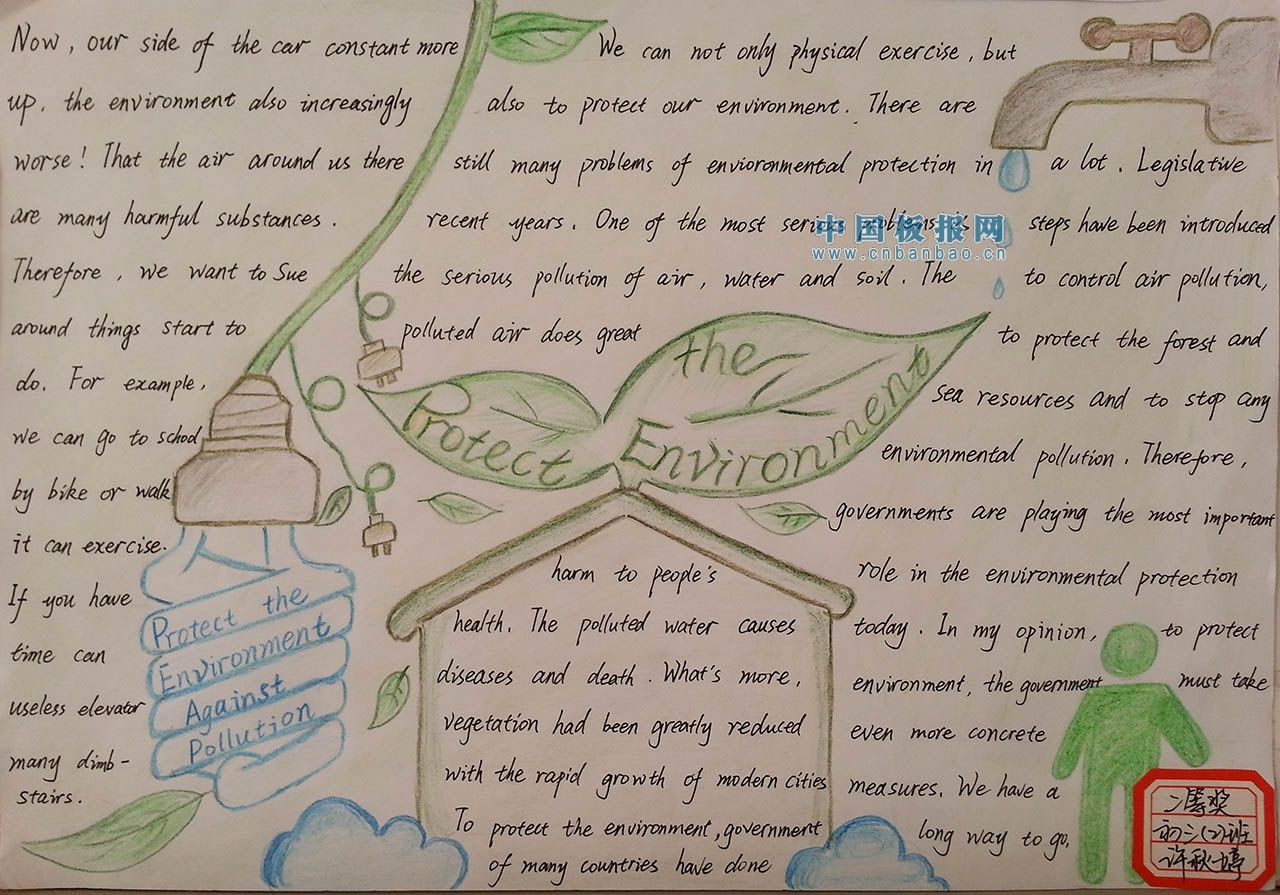 Now, our side of the car constant more
up, the environment also increasingly
worse! That the air around us there
are many harmful substances.
Therefore, we want to Sue
around things start to
do. For example,
we can go to school
by bike or walk
it can exercise.
If you have
time can
useless elevator
many dimb-
stairs.
Protect the
Environment
Against
Pollution
We can not only physical exercise, but
also to protect our environment. There are
still many problems of envioronmental protection in
recent years. One of the most serious problems is
the serious pollution of air, water and soil. The
polluted air does great
Protect the
Environment
harm to people's
health. The polluted water causes
diseases and death. What's more,
vegetation had been greatly reduced
with the rapid growth of modern cities
To protect the environment, government
of many countries have done
a lot. Legislative
steps have been introduced
to control air pollution,
to protect the forest and
sea resources and to stop any
environmental pollution. Therefore,
governments are playing the most important
role in the environmental protection
today. In my opinion, to protect
environment, the government must take
even more concrete
measures. We have a
long way to go.
中国板报网
www.cnbanbao.cn
二等奖
初二(2)班
许秋婷